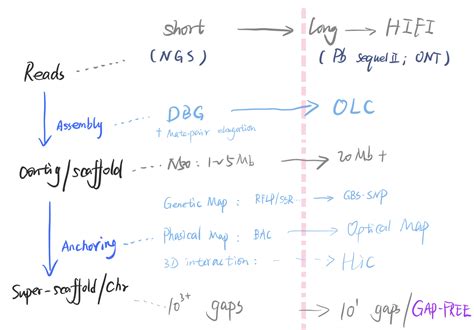 short → long → HIFI
Reads (NGS) (Pb sequel II; ONT)
Assembly DBG → OLC
+ Mate-pair elongation
Contig/scaffold N50: 1~5Mb → 20Mb+
Genetic Map: RFLP/SSR → GBS-SNP
Anchoring Phasical Map: BAC → Optical Map
3D interaction: → HiC
Super-scaffold/chr 10³⁺ gaps → 10¹ gaps/GAP-FREE